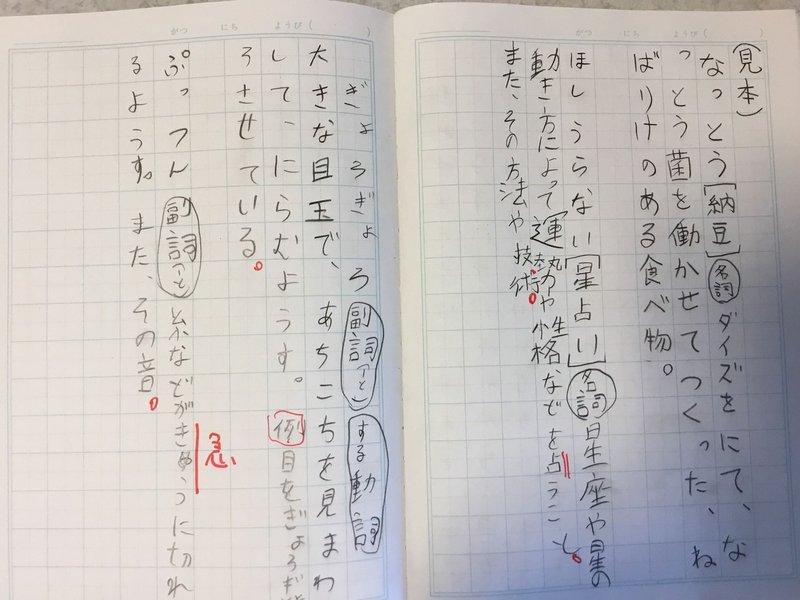 がつ にち ようび( )
(見本)
なっとう[納豆]名詞ダイズをにて、な
っとう菌を働かせてつくった、ね
ばりけのある食べ物。
ほしうらない[星占い]名詞星座や星の
動き方によって運勢や性格などを占うこと。
また、その方法や技術。
がつ にち ようび( )
ぎょろぎょろ副詞(と)する動詞
大きな目玉で、あちこちを見まわ
して、にらむようす。例目をぎょろぎ
ろさせている。
ぷっつん副詞(と)糸などがきゅうに切れ
急
るようす。また、その音。